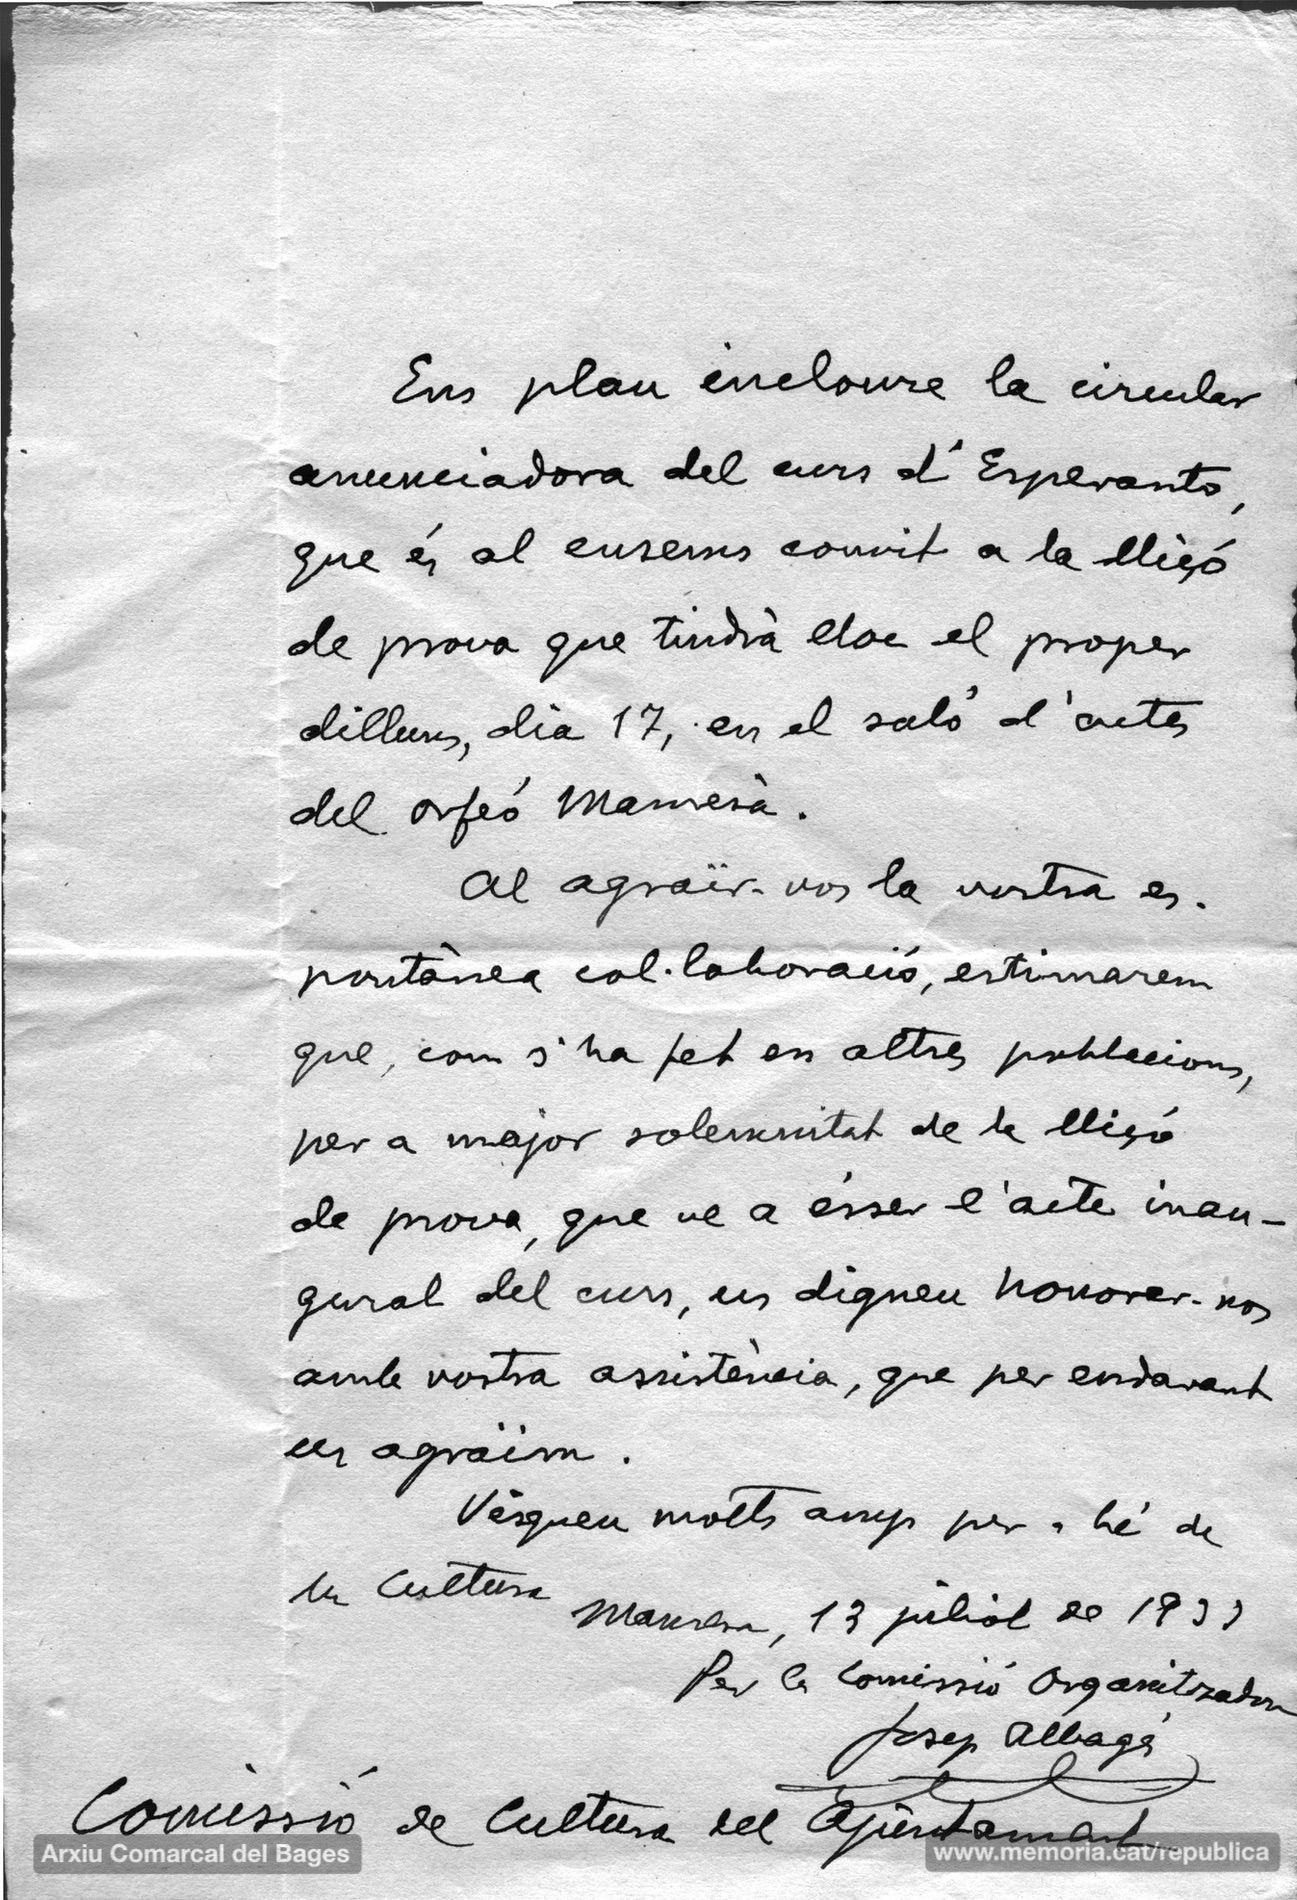 Ens plau incloure la circular
anunciadora del curs d'Esperanto,
que és al ensems convit a la lliçó
de prova que tindrà lloc el proper
dilluns, dia 17, en el saló d'actes
del Orfeó Manresà.
Al agraïr-vos la vostra es-
pontànea col·laboració, estimarem
que, com s'ha fet en altres poblacions,
per a major solemnitat de la lliçó
de prova, que ve a ésser l'acte inau-
gural del curs, us digneu honorar-nos
amb vostra assistència, que per endavant
us agraïm.
Visqueu molts anys per a bé de
la Cultura
Manresa, 13 juliol de 1933
Per la Comissió Organitzadora
Josep
Comissió de Cultura del Ajuntament
Arxiu Comarcal del Bages
www.memoria.cat/republica